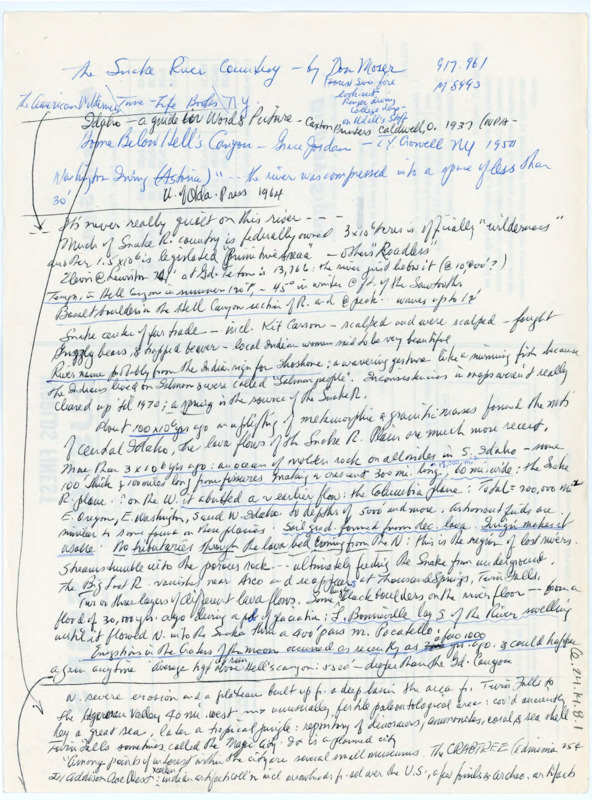 The Snake River Country — by Don Moser 917.961
M8993
Forest Service fire
look-out
Ranger during
college days —
on Udall's Staff
The American Wilderness Time-Life Books NY
Idaho — a guide in Word & Picture — Caxton Printers Caldwell, O. 1937 (WPA —
Home Below Hell's Canyon — Grace Jordan — T.Y. Crowell NY 1950
Washington Irving (Astoria) "--- the river was compressed into a space of less than
30'
U. of Okla. Press 1964
It's never really quiet on this river - - -
Much of Snake R. country is federally owned 3x10⁶ acres is officially "wilderness"
another 1.5x10⁶ is legislated "primitive area" — others "Roadless"
Elev. @ Lewiston at Gd. Teton is 13,766: the river just below it (@ 10'000'?)
Temps. in Hell Canyon in summer 120°, -45° in winter @ ft. of the Sawtooths
Basalt boulders in the Hell Canyon section of R. and @ peak waves up to 12'
Snake center of fur trade — incl. Kit Carson — scalped and were scalped — fought
Grizzly bears, & trapped beaver — local Indian women said to be very beautiful
River name probably from the Indian sign for Shoshone; a wavering gesture like a running fish because
the Indians lived on Salmon & were called 'Salmon people'. Inconsistencies in maps weren't really
cleared up 'til 1970; a spring is the source of the Snake R.
About 100x10⁶ yrs ago an uplifting of metamorphic & granitic masses formed the mts
of central Idaho, the lava flows of the Snake R. Plain are much more recent.
More than 3x10⁶ yrs ago: an ocean of molten rock on all sides in S. Idaho — some
100' thick & 100 miles long from fissures making a crescent 300 mi. long, 60 mi. wide: the Snake
R. plane: on the W. it abutted an earlier flow: the Columbia plane: Total = 200,000 mi²
E. Oregon, E. Washington, S and W. Idaho to depths of 5000 and more. Astronaut guides are
similar to some found on these places. Soil good formed from dec. lava. Irrign makes it
usable. No tributaries through the lava bed coming from the N: this is the region of lost rivers.
Streams tumble into the porous rock --- ultimately feeding the Snake from underground.
The Big Lost R. vanishes near Arco and reappears at Thousand Springs, Twin Falls.
Two or three layers of different lava flows. Some black boulders on the river floor — from a
flood of 30,000 yrs. ago during a pd. of glaciatn; L. Bonneville lay S. of the River swelling
until it flowed N. into the Snake thru a 400' pass nr. Pocatello.
Eruptions in the Craters of the Moon occurred as recently as a few 1000 yr. ago. & could happen
again anytime average hgt of rim above Hell's canyon: 5500' — deeper than the Gd. Canyon
N. severe erosion and a plateau built up fr. a deep basin the area fr. Twin Falls to
the Hagerman Valley 40 mi. west — unusually fertile paleontological area: cov'd anciently
by a great sea, later a tropical jungle: repository of dinosaurs, ammonites, coral & sea shell
Twin Falls sometimes called the Magic City. It is a planned city
"Among points of interest within the city are several small museums. The CRABTREE (admission 25¢
at Addison Ave West: excellent indian artifact coll'n incl arrowheads fr. all over the U.S., a few fossils & archeo. artifacts
6.24.H.B.1